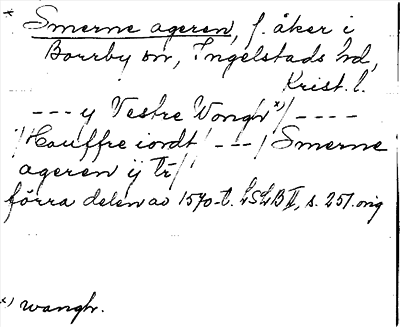 * Smerne ageren, f. åker i
Borrby sn, Ingelstads hd,
Krist. l.
--- y Vestre Wongh *)/ ----
/Houffre iordt/ ---/ Smerne
ageren ij tr/
förra delen av 1570-t. LSLB II, s. 257. orig
*) wangh.